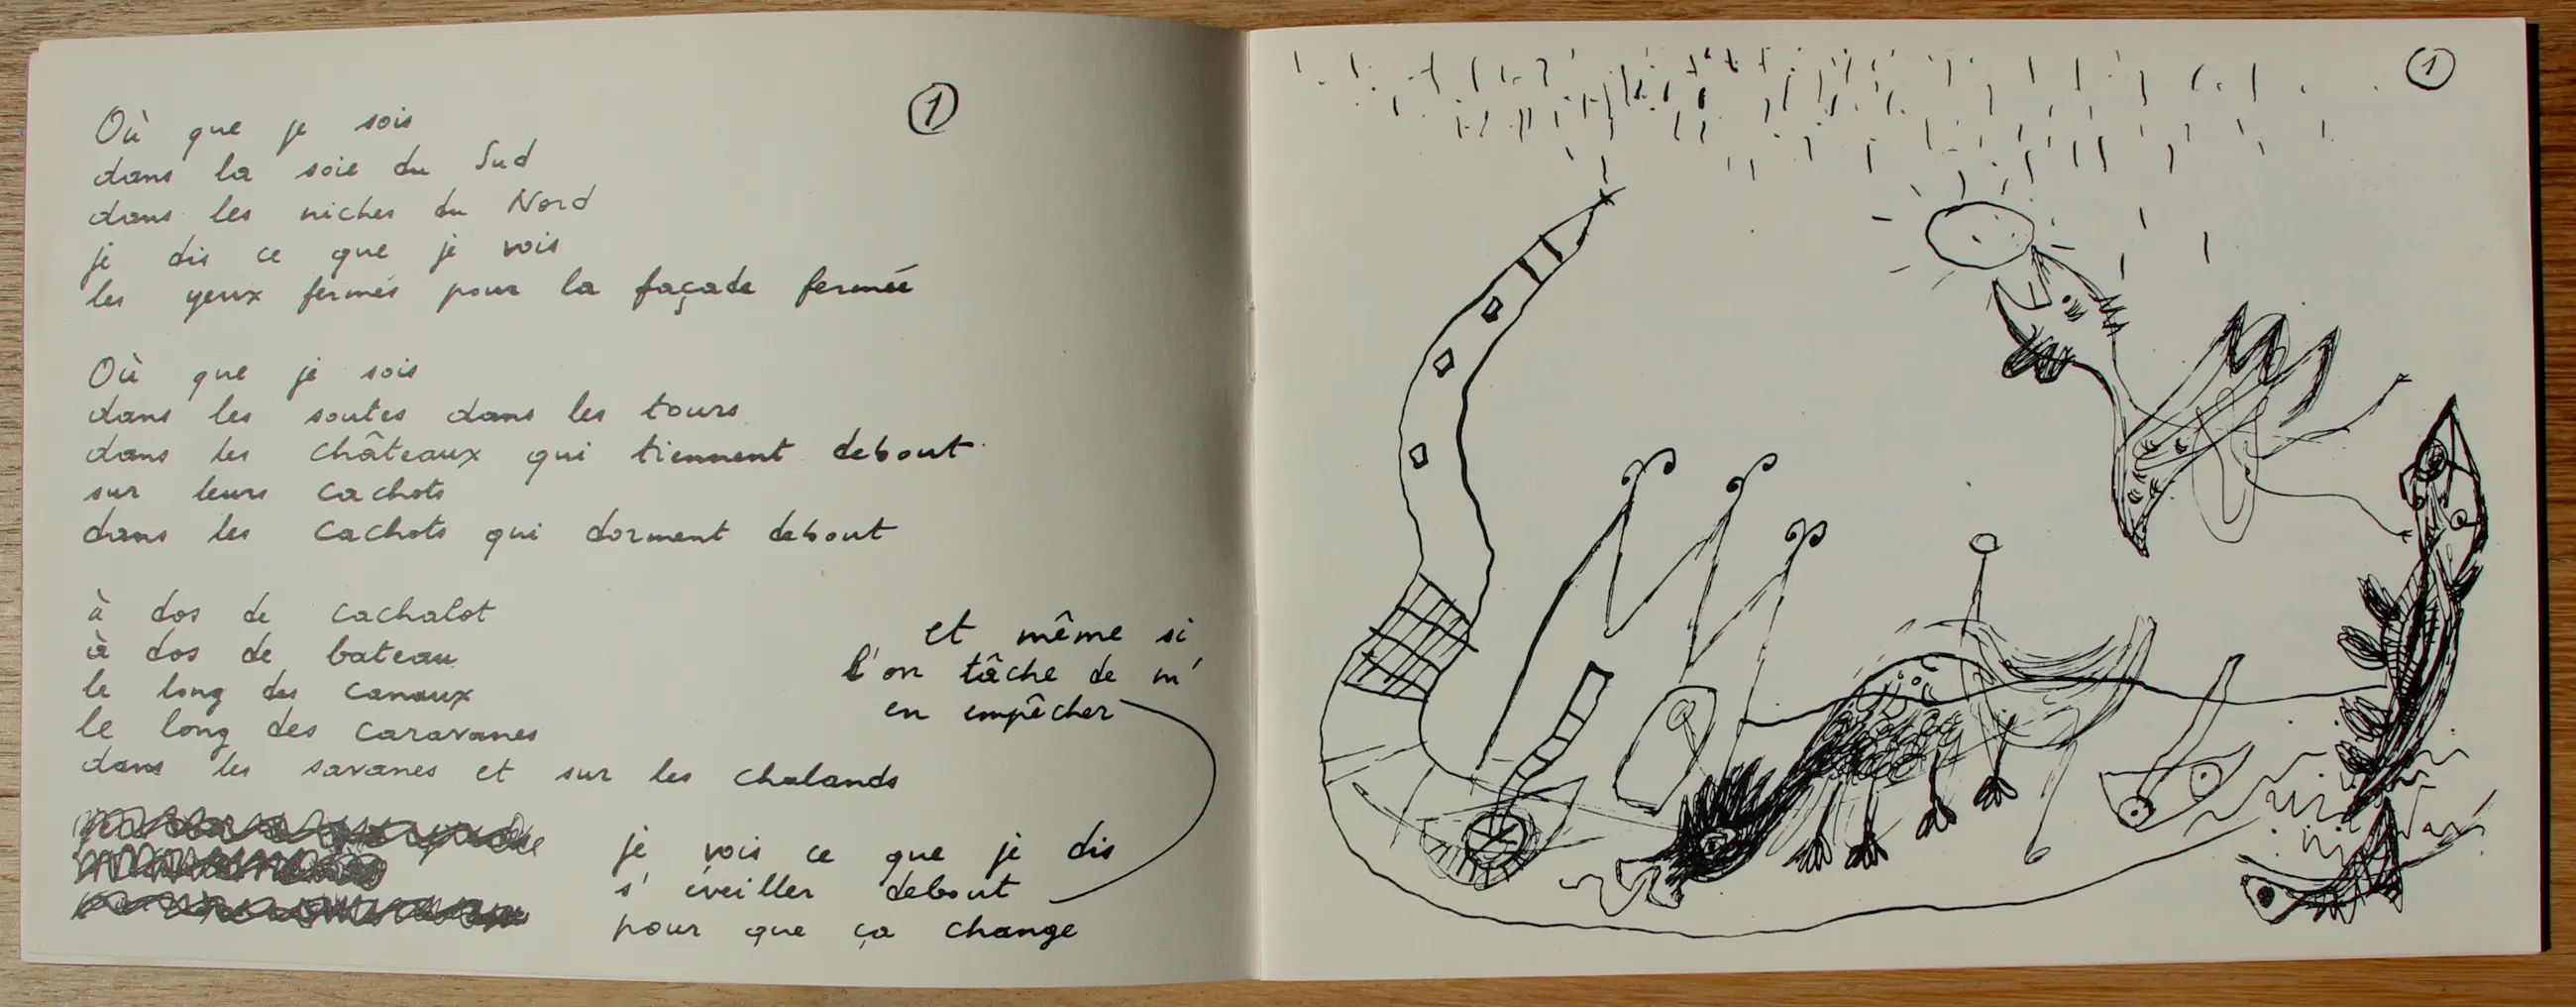 ①
Où que je sois
dans la soie du Sud
dans les niches du Nord
je dis ce que je vois
les yeux fermés pour la façade fermée
Où que je sois
dans les soutes dans les tours
dans les châteaux qui tiennent debout
sur leurs cachots
dans les cachots qui dorment debout
à dos de cachalot
à dos de bateau
le long des canaux
le long des caravanes
dans les savanes et sur les chalands
je vois ce que je dis
s'éveiller debout
et même si
l'on tâche de m'
en empêcher
pour que ça change
①